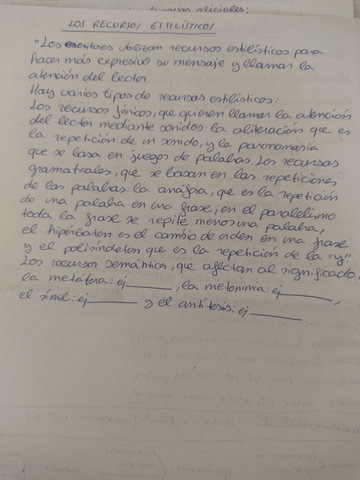 LOS RECURSOS ESTILÍSTICOS
"Los escritores utilizan recursos estilísticos para
hacer más expresivo su mensaje y llamar la
atención del lector.
Hay varios tipos de recursos estilísticos:
Los recursos fónicos, que quieren llamar la atención
del lector mediante sonidos: la aliteración que es
la repetición de un sonido, y la paronomasia
que se basa en juegos de palabras. Los recursos
gramaticales, que se basan en las repeticiones
de las palabras: la anáfora, que es la repetición
de una palabra en una frase, en el paralelismo
toda la frase se repite menos una palabra,
el hipérbaton es el cambio de orden en una frase
y el polisíndeton que es la repetición de la "y".
Los recursos semánticos, que afectan al significado:
la metáfora: ej ______, la metonimia: ej ______,
el símil: ej ______ y el antítesis: ej ______